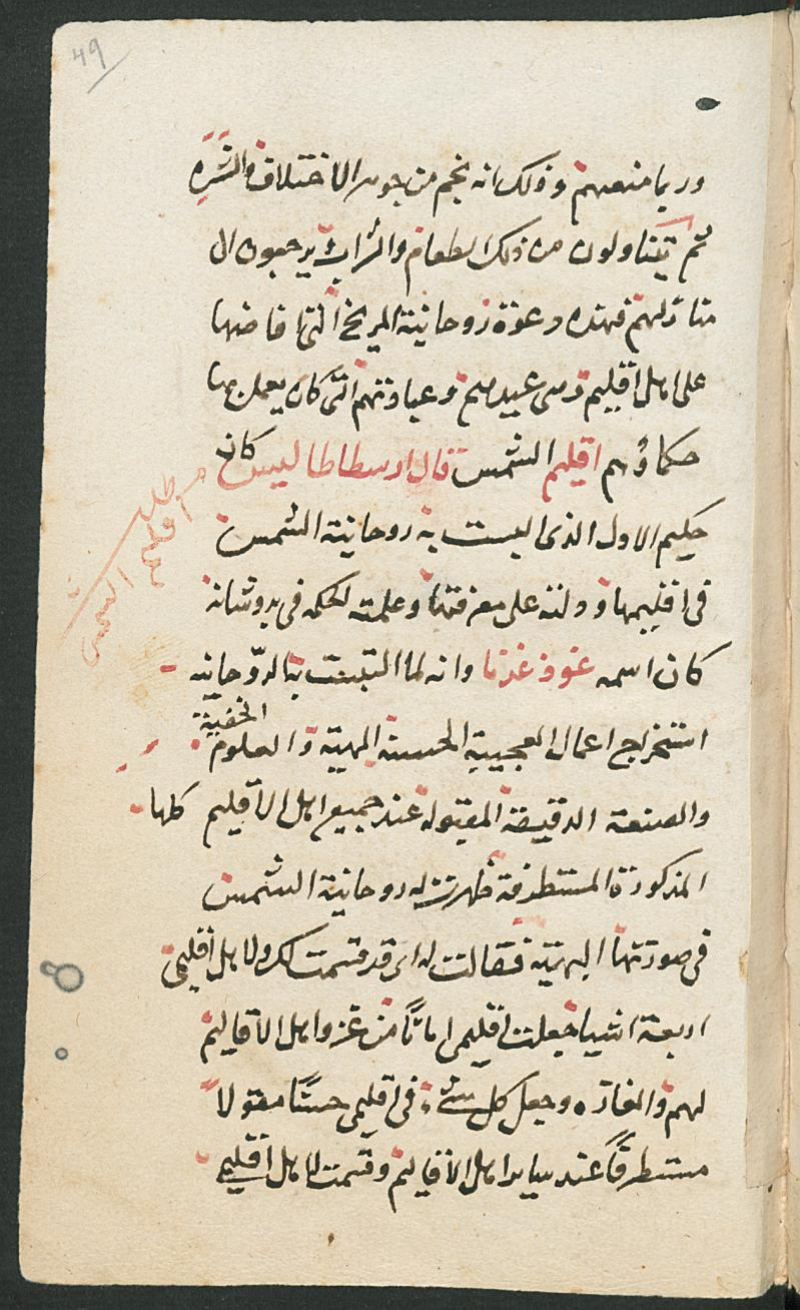 49
وربما منعهم وذلك انه نجم من جوهر الاختلاف والشره
ثم يتناولون من ذلك الطعام والشراب يرجعون ال
منازلهم فهذه دعوة روحانية المريخ التى فاضها
على اهل اقليم عيدهم وعبادتهم التى كان يعمل بها
حكماؤهم اقليم الشمس قال ارسطاطاليس كان
حكيم الاول الذى البست به روحانية الشمس
فى اقليمها ودلته على معرفتها وعلمته الحكمه فى بدوشانه
كان اسمه وانه لما التبست به الروحانيه
استخرج اعمال العجيبة الحسنة البهية والعلوم الخفية
والصنعة الدقيقة المقبوله عند جميع اهل الاقليم كلها
المذكورة المستطرفة ظهرت له روحانية الشمس
فى صورتها البهية فقالت له انى قد قسمت لك ولاهل اقليمى
اربعة اشيا جعلت اقليمى امانًا من غزو اهل الاقاليم
لهم والغارة وجعل كل شئ فى اقليمى حسنًا مقبولا
مستطرفًا عند ساير اهل الاقاليم وقسمت لاهل اقليمى
مطلب
اقليم الشمس